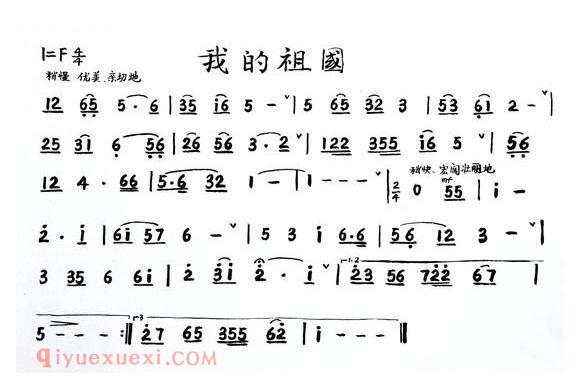 1=F 4/4 我的祖國
稍慢 优美、亲切地
12 65 5·6 | 35 i6 5 - ˅ | 5 65 32 3 | 53 61 2 - ˅ |
25 31 6 56 | 26 56 3·2 ˅ | 122 355 i6 5 ˅ | 56
稍快、宏阔壮丽地
12 4· 66 | 5·6 32 1 - | 1 - - - ˅ | 2/4 0 mf 55 | i -
2· i | 6i 57 6 - ˅ | 5 3 i 6·6 | 56 12 3 - ˅ |
3 35 6 6i | 2 3i 2· i ˅ | 1.2 23 56 722 67 |
5 - - - :| 3 27 65 355 62 | i - - - ||
qiyuexuexi.com(器乐学习网)